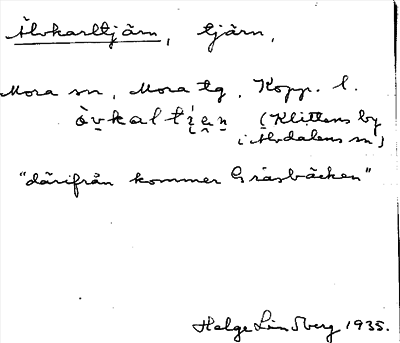 Älvkarltjärn, tjärn,
Mora sn, Mora tg, Kopp. l.
(Klittens by
i Älvdalens sn)
"därifrån kommer Gräsbäcken"
Helge Lindberg 1935.